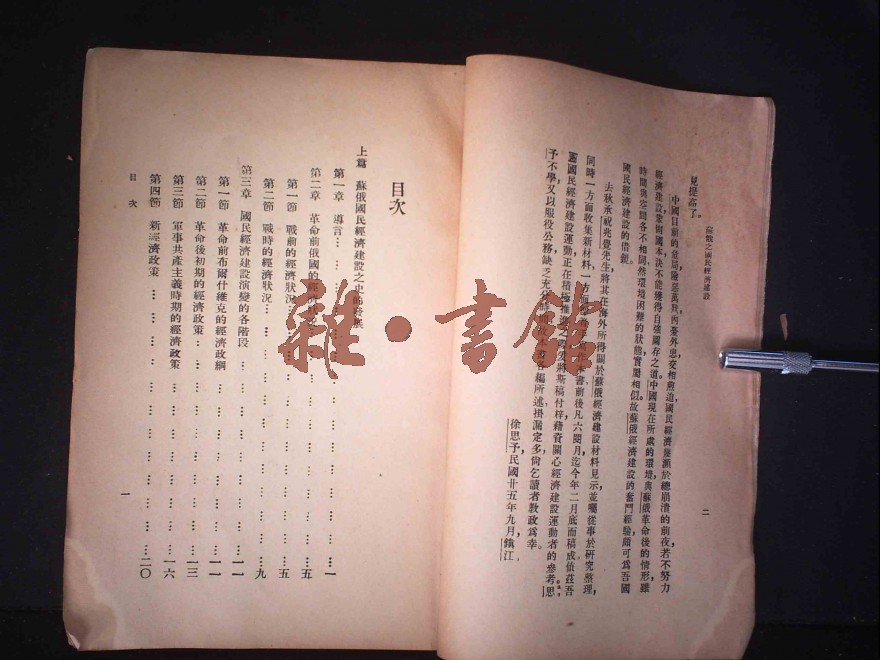 蘇俄之國民經濟建設
二
見提高了。
中國目前的危局險惡萬狀內憂外患交相煎迫國民經濟瀕於總崩潰的前夜若不努力
經濟建設鞏固國本決不能獲得自強圖存之道中國現在所處的環境與蘇俄革命後的情形雖
時間與空間各不相同然環境困難的狀態實屬相似。故蘇俄經濟建設的奮鬥經驗頗可為吾國
國民經濟建設的借鏡。
去秋承祝兆覺先生將其在海外所得關於蘇俄經濟建設材料見示並囑從事於研究整理,
同時一方面收集新材料一方面 本書前後凡六閱月迄今年二月底而稿成值茲吾
國國民經濟建設運動正在積極推進 將斯稿付梓藉資關心經濟建設運動者的參考。思
予不學又以服役公務缺乏充分 故本書各編所述掛漏定多尚乞讀者教政為幸。
徐思予民國廿五年九月鎮江
目次
上篇 蘇俄國民經濟建設之史的發展
第一章 導言……一
第二章 革命前俄國的經濟狀況……五
第一節 戰前的經濟狀況……五
第二節 戰時的經濟狀況……九
第三章 國民經濟建設演變的各階段……一一
第一節 革命前布爾什維克的經濟政綱……一一
第二節 革命後初期的經濟政策……一三
第三節 軍事共產主義時期的經濟政策……一六
第四節 新經濟政策……二〇
目次
一
雜·書鈔